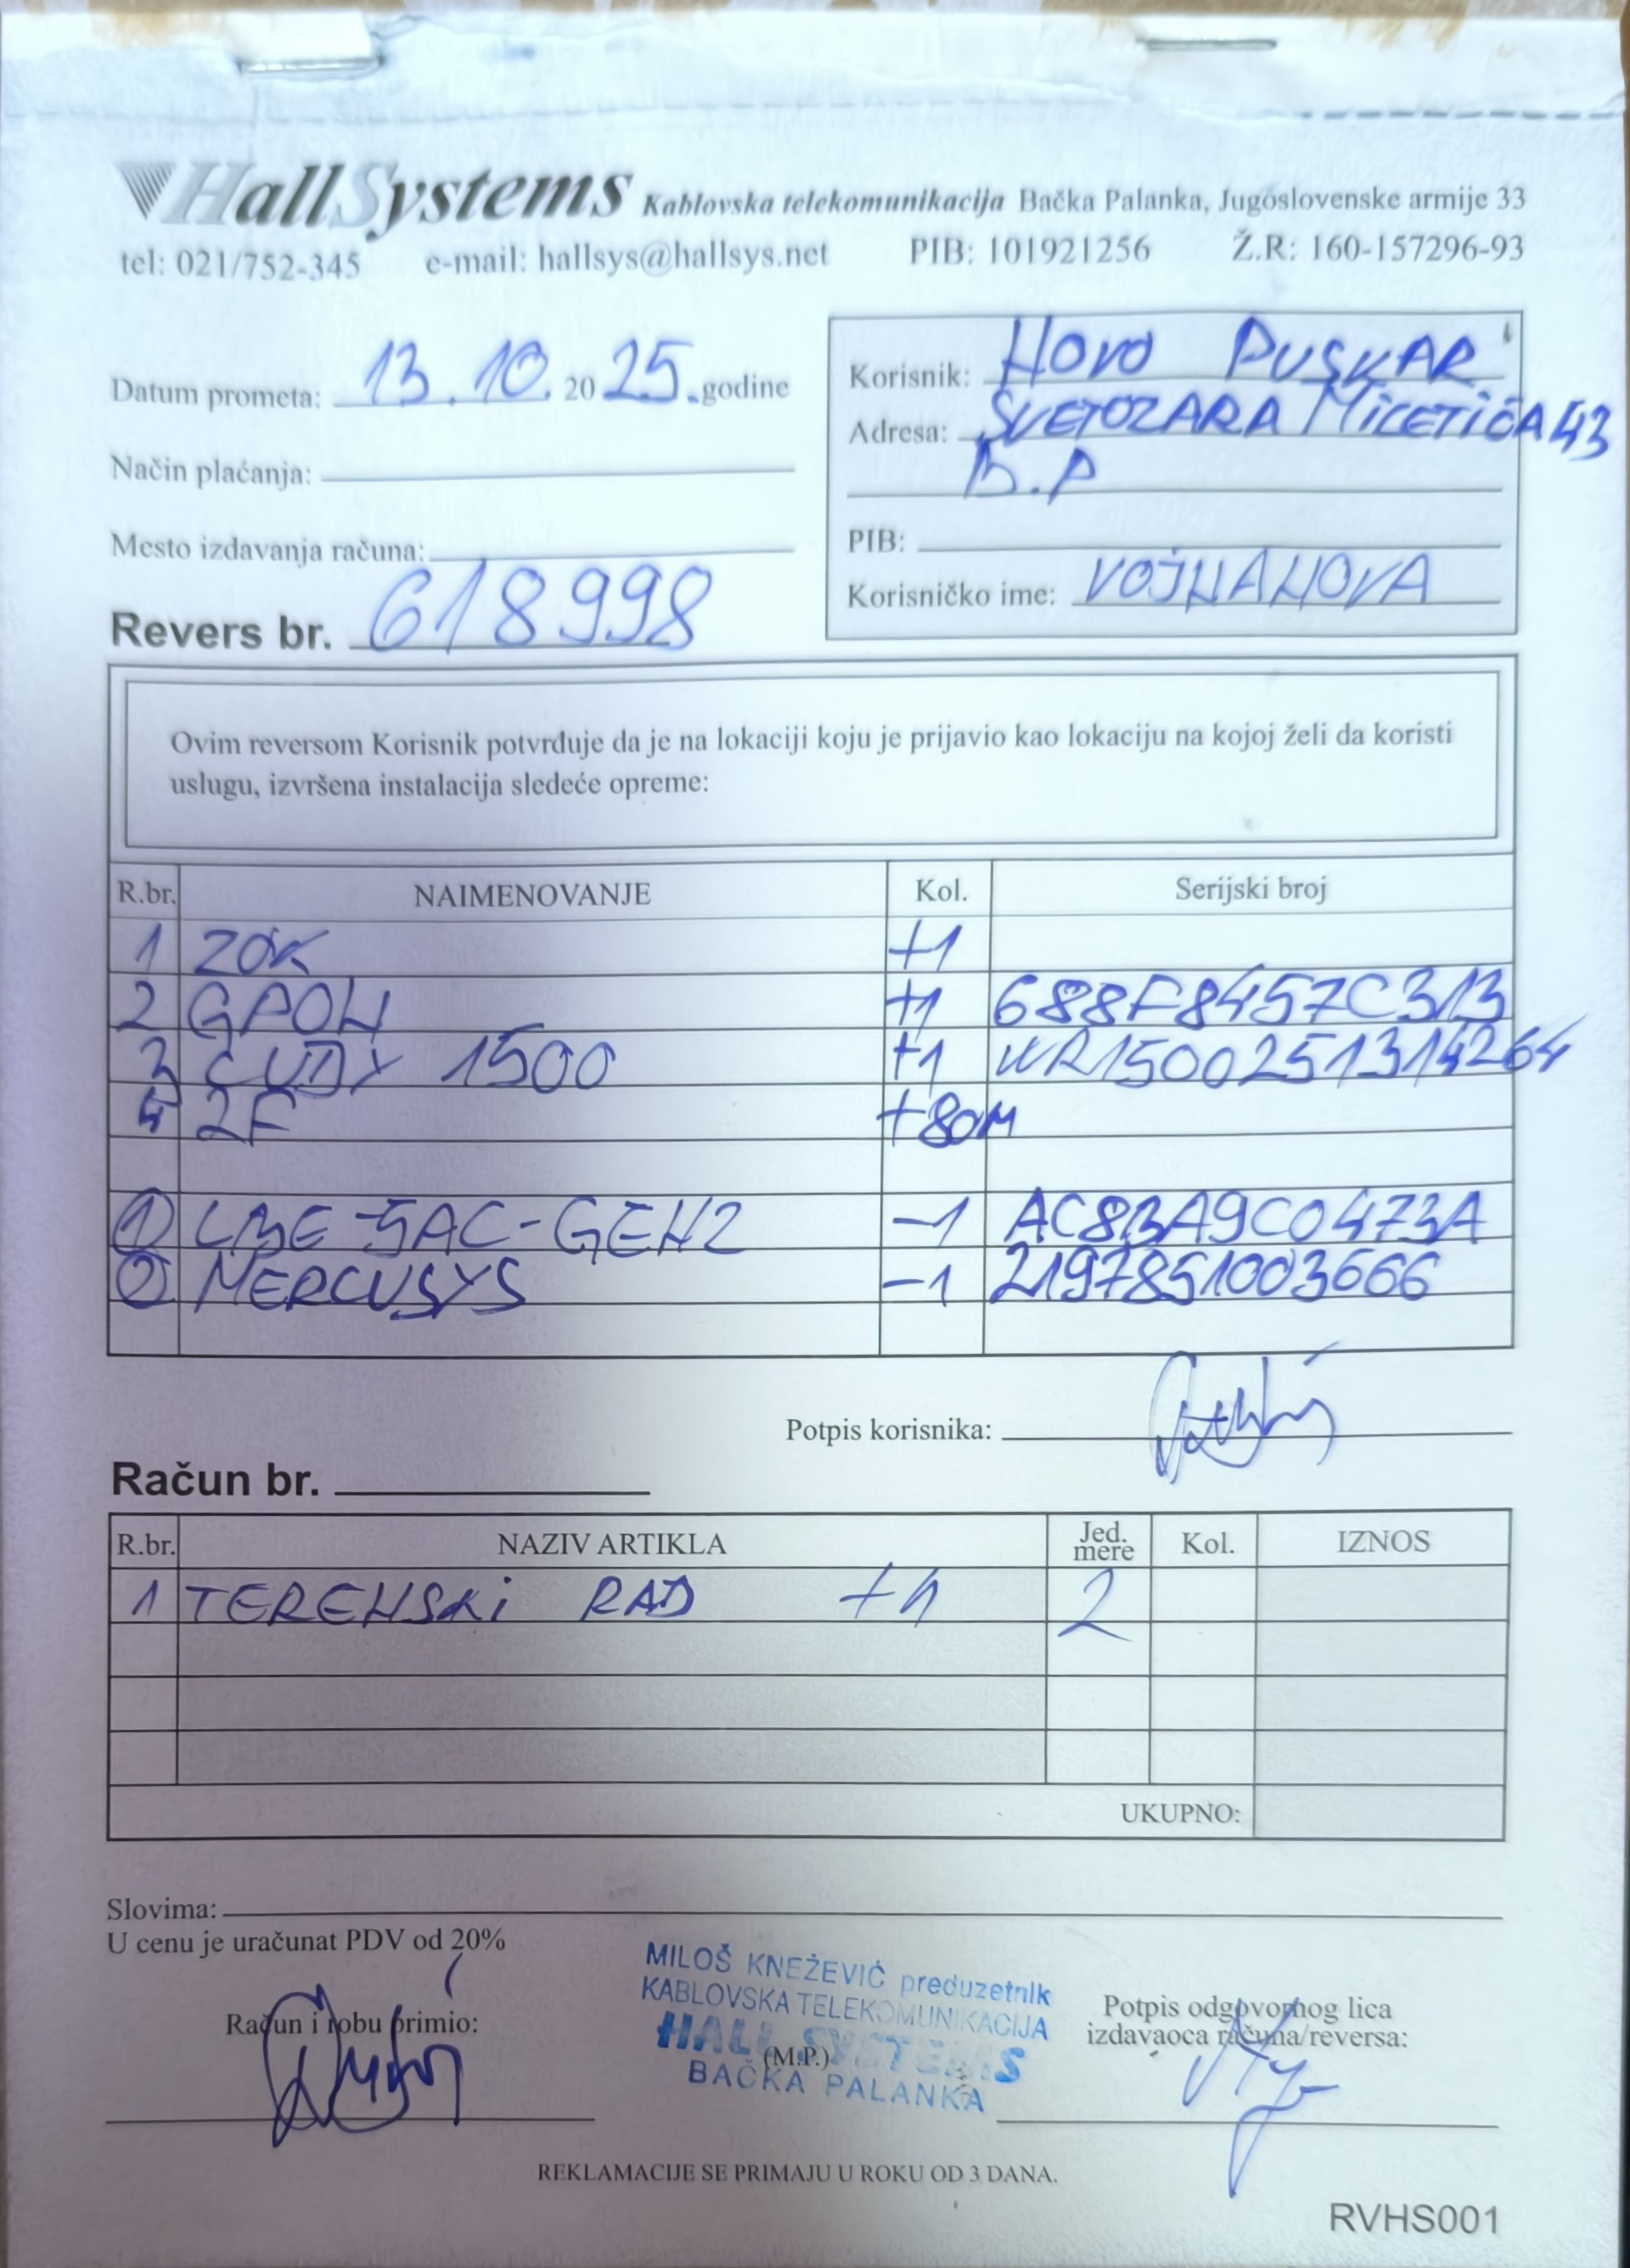 HallSystems Kablovska telekomunikacija Bačka Palanka, Jugoslovenske armije 33
tel: 021/752-345 e-mail: hallsys@hallsys.net PIB: 101921256 Ž.R: 160-157296-93
Datum prometa: 13.10.2025.godine
Način plaćanja:
Mesto izdavanja računa:
Revers br. 618998
Korisnik: NOVO PUSKAR
Adresa: SVETOZARA MiLETiĆA 43
B.P
PIB:
Korisničko ime: VOJNANOVA
Ovim reversom Korisnik potvrđuje da je na lokaciji koju je prijavio kao lokaciju na kojoj želi da koristi
uslugu, izvršena instalacija sledeće opreme:
R.br. NAIMENOVANJE Kol. Serijski broj
1 ZOK +1
2 GPON +1 688F8457C313
3 CUDY 1500 +1 WR1500251314264
4 2F +80M
1 LBE-5AC-GEN2 -1 AC8BA9C0473A
2 MERCUSYS -1 2197851003666
Potpis korisnika:
Račun br.
R.br. NAZIV ARTIKLA Jed. mere Kol. IZNOS
1 TERENSKi RAD +h 2
UKUPNO:
Slovima:
U cenu je uračunat PDV od 20%
Račun i robu primio:
MILOŠ KNEŽEVIĆ preduzetnik
KABLOVSKA TELEKOMUNIKACIJA
HALL SYSTEMS
(M.P.)
BAČKA PALANKA
Potpis odgovornog lica
izdavaoca računa/reversa:
REKLAMACIJE SE PRIMAJU U ROKU OD 3 DANA.
RVHS001